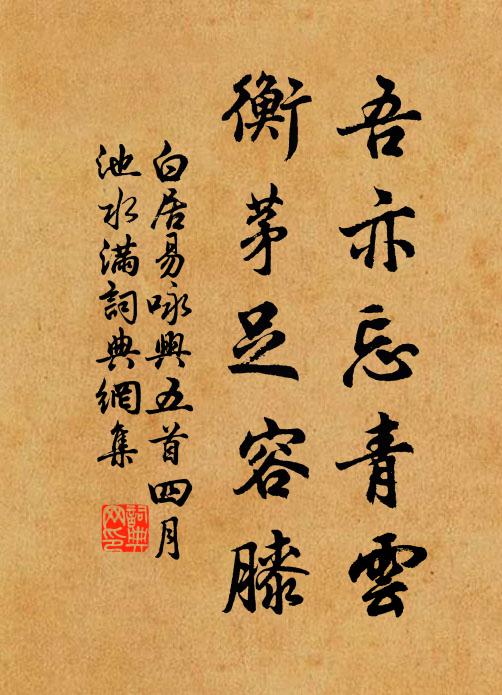 吾亦忘青雲
衡茅足容膝
白居易咏興五首四月
池水滿詞典網集
詞典网印